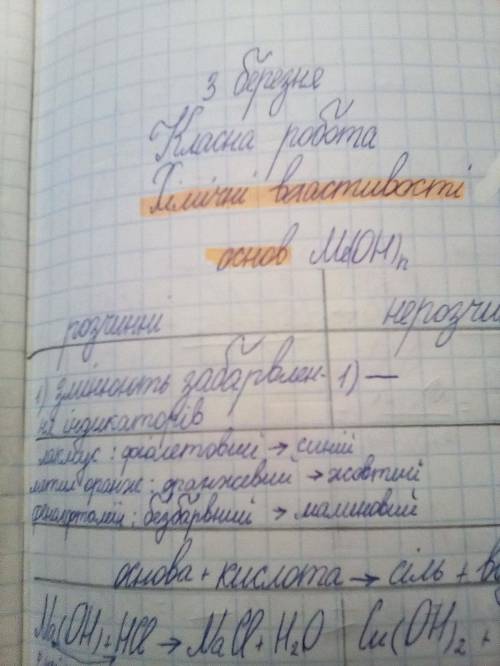 3 березня
Класна робота
Хімічні властивості
основ Me(OH)n
розчинні нерозчи
1) змінюють забарвлен- 1) —
ня індикаторів
лакмус: фіолетовий → синій
метил оранж: оранжевий → жовтий
фенолфталеїн: безбарвний → малиновий
основа + кислота → сіль + во
Na(OH) + HCl → NaCl + H2O Cu(OH)2 +